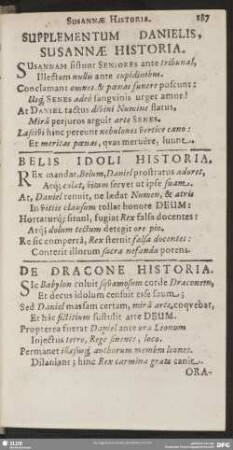 SUSANNÆ HISTORIA. 187
SUPPLEMENTUM DANIELIS,
SUSANNÆ HISTORIA.
SUSANNAM sistunt SENIORES ante tribunal,
Illectam nullis ante cupidinibus.
Conclamant omnes & pœnas funere poscunt:
Usq; SENES adeò sangvinis urget amor!
At DANIEL tactus divini Numine flatus,
Mirè perjuros arguit arte SENES.
Lascivi hinc pereunt nebulones vertice cano:
Et meritas pœnas, qvas meruêre, luunt.
BELIS IDOLI HISTORIA.
REx mandat, Belum, Daniel prostratus adoret,
Atq; colat, vitam servet ut ipse suam.
At, Daniel renuit, ne lædat Numen, & atris
In vitiis clausum tollat honore DEUM:
Hortaturq; simul, fugiat Rex falsa docentes:
Atq; dolum tectum detegit ore pio.
Re sic compertâ, Rex sternit falsa docentes:
Conterit illorum sacra nefanda potens.
DE DRACONE HISTORIA.
SIc Babylon coluit sqvamosum corde Draconem,
Et decus idolum censuit esse suum;
Sed Daniel massam certam, mirâ arte, coqvebat,
Et hâc fictitium sustulit arte DEUM.
Propterea fuerat Daniel ante ora Leonum
Injectus tetro, Rege sinente, loco.
Permanet illæsus, authorum membra leones
Dilaniant; hinc Rex carmina grata canit.
ORA-